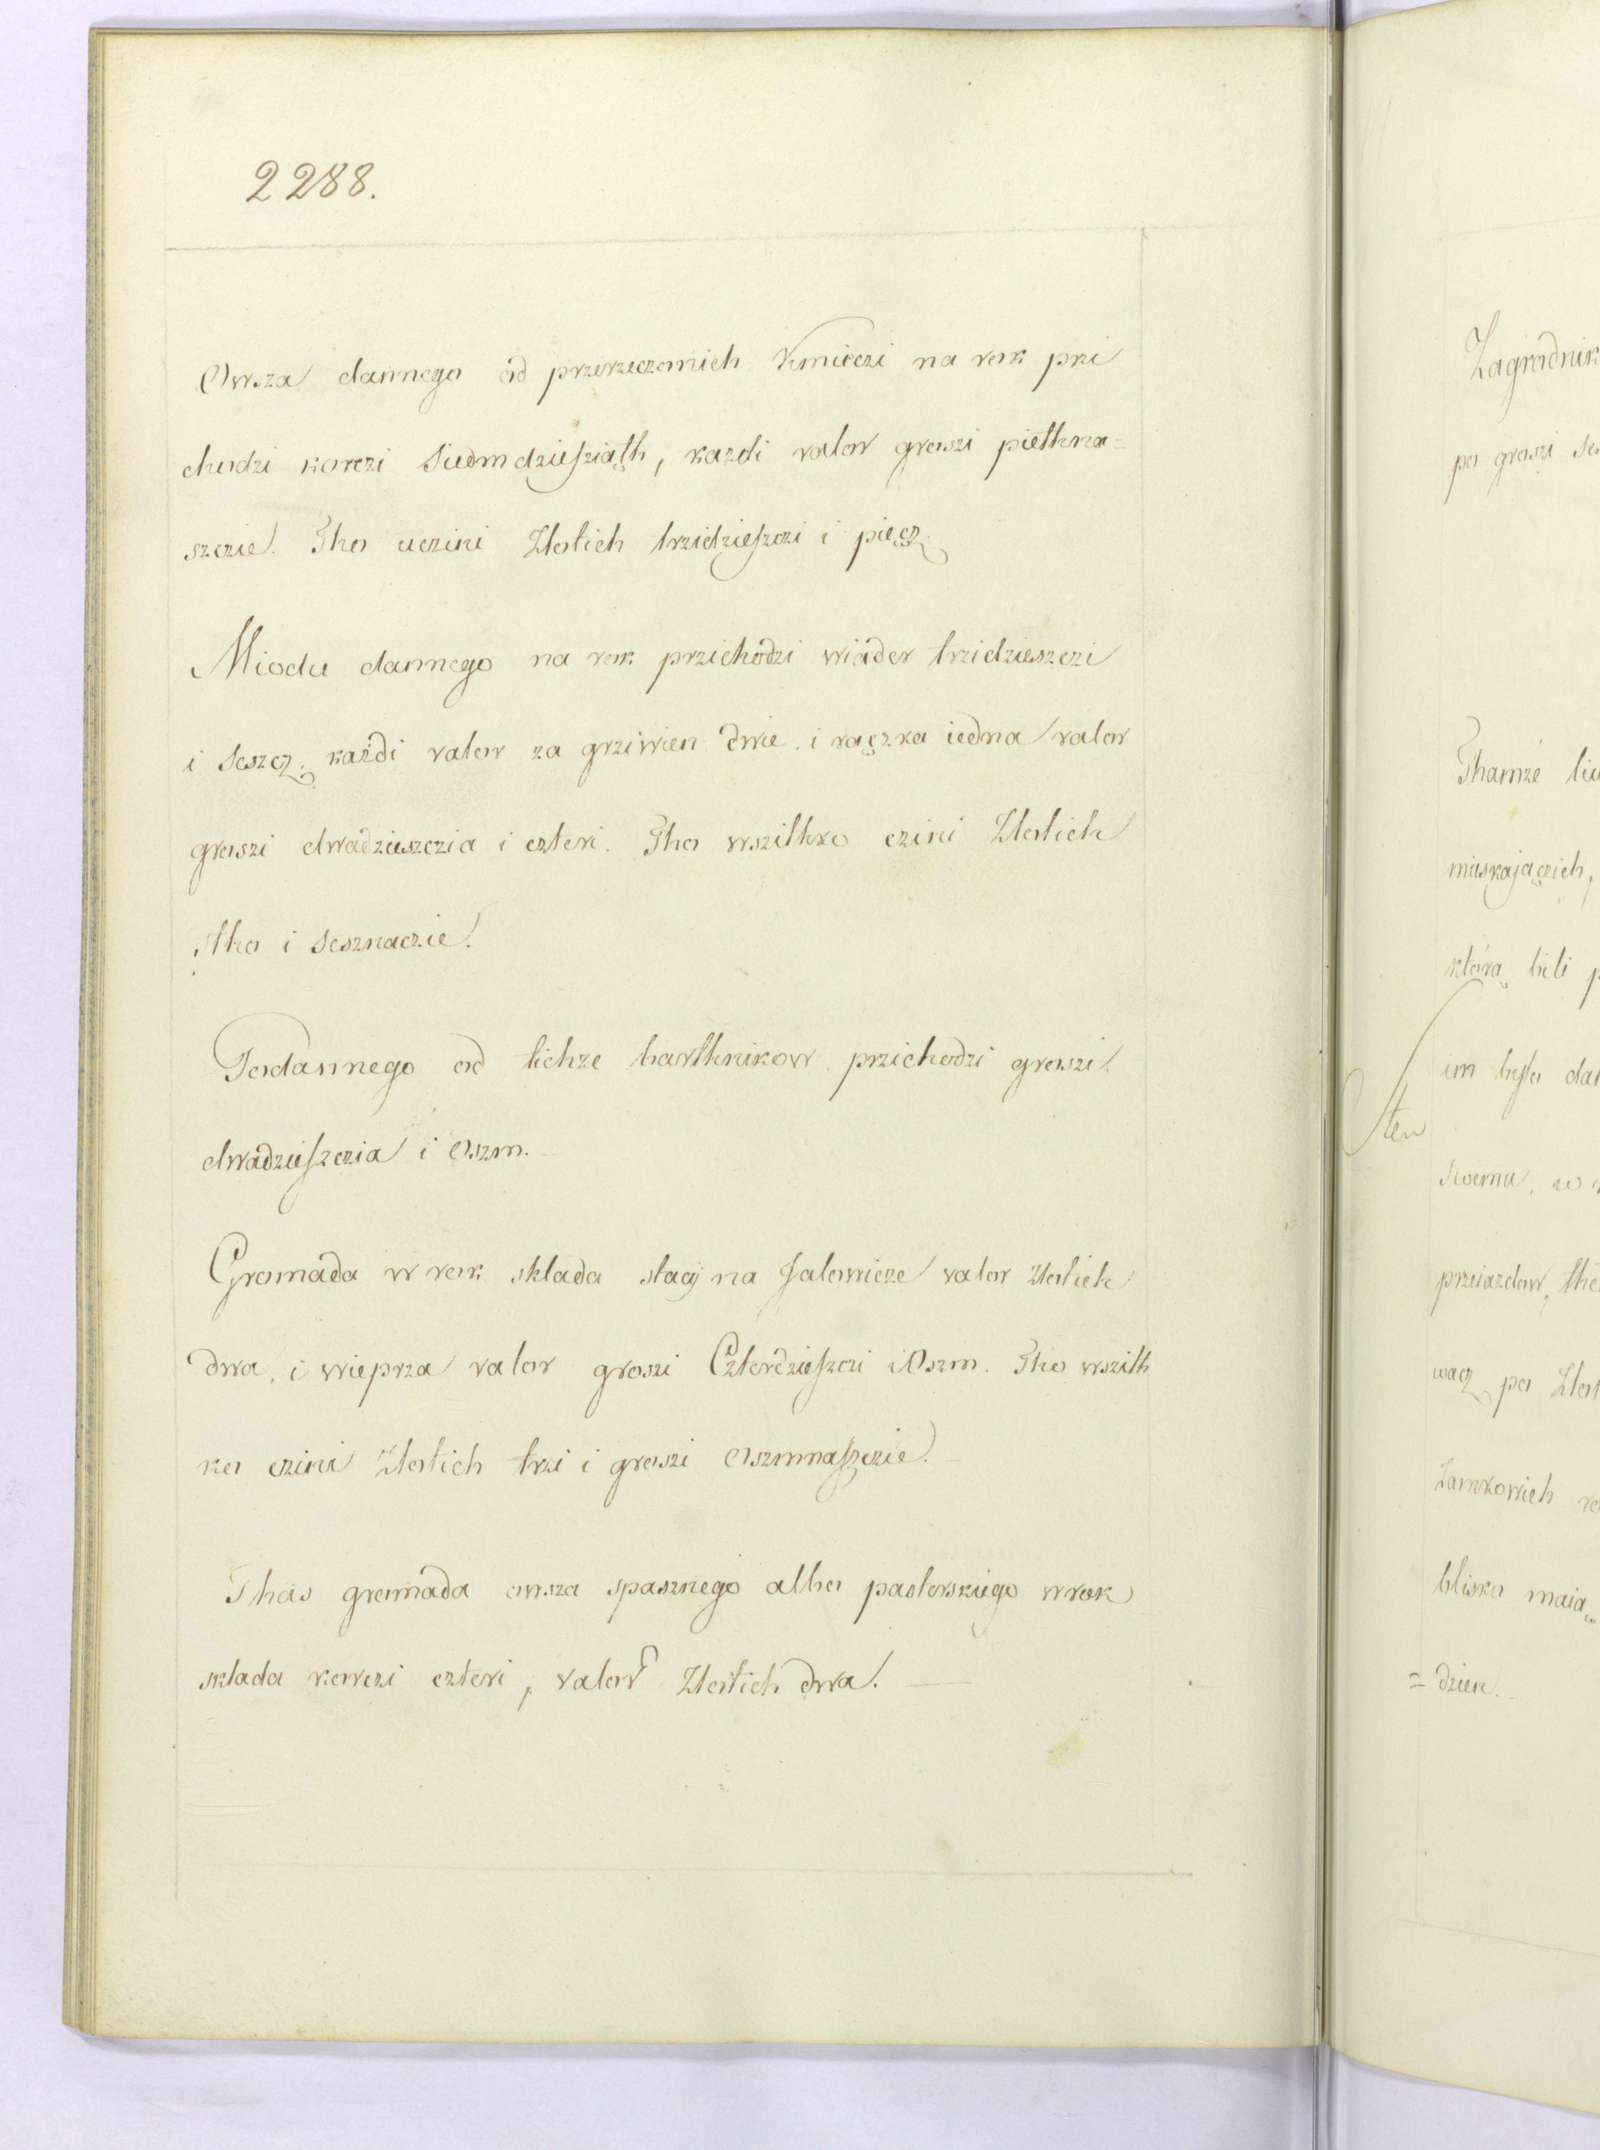 2288.
Owsza dannego od przerzeczonich Kmieczi na rok pzi
chodzi korczi Siedmdziesziąth, kazdi valor groszi piethna=
szczie. Tho uczini Złotich trzidzieszczi i pięcz.
Miodu dannego na rok przichodzi wiader trzidzieszczi
i Seszcz. każdi valor za grziwien dwie. i rączka iedna valor
groszi dwadzieszczia i czteri. Tho wszithko czini Złotich
stho i Sesznaczie.
Podannego od tichze barthnikow. przichodzi groszi.
dwadzieszczia i Oszm.
Gromada w rok sklada stacij na Jalowicze valor złotich
dwa, i wieprza valor groszi Czterdzieszczi i Oszm. Tho wszith
ko czini Złotich trzi i groszi Oszmnaszczie.
Thas gromada owsza spasznego albo pastorskiego w rok
sklada korczi czteri, valor Złotich dwa.
Zagrodnik
po groszi
Thamże
mieskajączich,
którą bili
im było
Sten
swemu, w
przeiazdow,
wacz po
Zamkowich
blisko maią
= dzien.